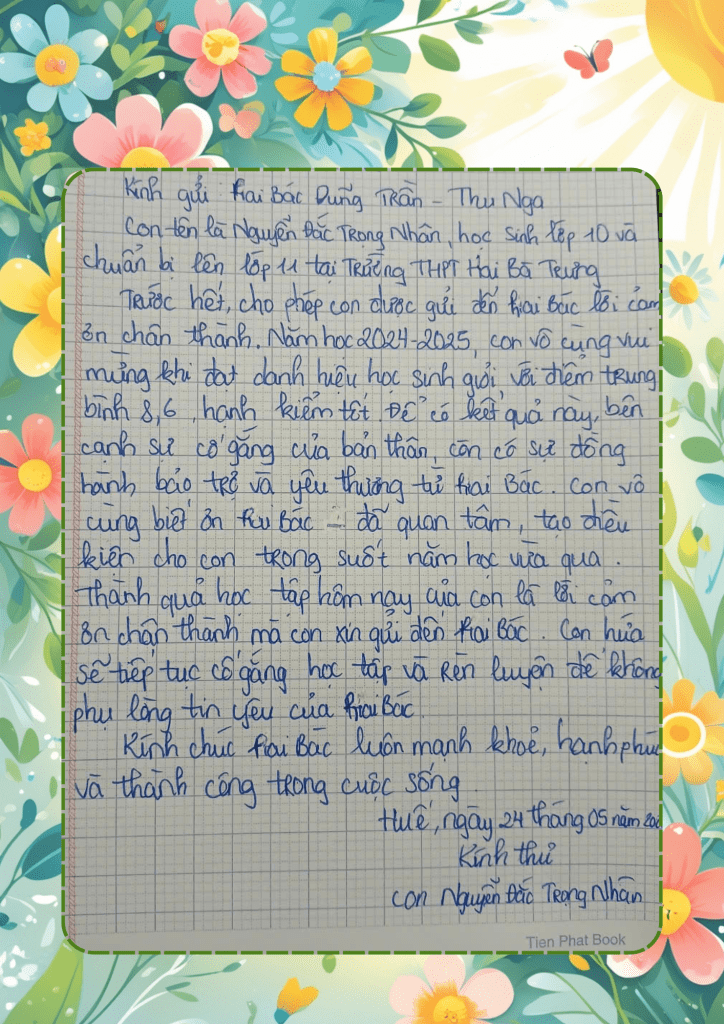 Kính gửi Hai Bác Dung Trần - Thu Nga
Con tên là Nguyễn Đắc Trọng Nhân, học sinh lớp 10 và
chuẩn bị lên lớp 11 tại Trường THPT Hai Bà Trưng
Trước hết, cho phép con được gửi đến Hai Bác lời cảm
ơn chân thành. Năm học 2024-2025, con vô cùng vui
mừng khi đạt danh hiệu học sinh giỏi với điểm trung
bình 8,6, hạnh kiểm tốt. Để có kết quả này, bên
cạnh sự cố gắng của bản thân, còn có sự đồng
hành bảo trợ và yêu thương từ Hai Bác. Con vô
cùng biết ơn Hai Bác - đã quan tâm, tạo điều
kiện cho con trong suốt năm học vừa qua.
Thành quả học tập hôm nay của con là lời cảm
ơn chân thành mà con xin gửi đến Hai Bác. Con hứa
sẽ tiếp tục cố gắng học tập và rèn luyện để không
phụ lòng tin yêu của Hai Bác.
Kính chúc Hai Bác luôn mạnh khoẻ, hạnh phúc
và thành công trong cuộc sống.
Huế, ngày 24 tháng 05 năm
Kính thư
Con Nguyễn Đắc Trọng Nhân
Tien Phat Book